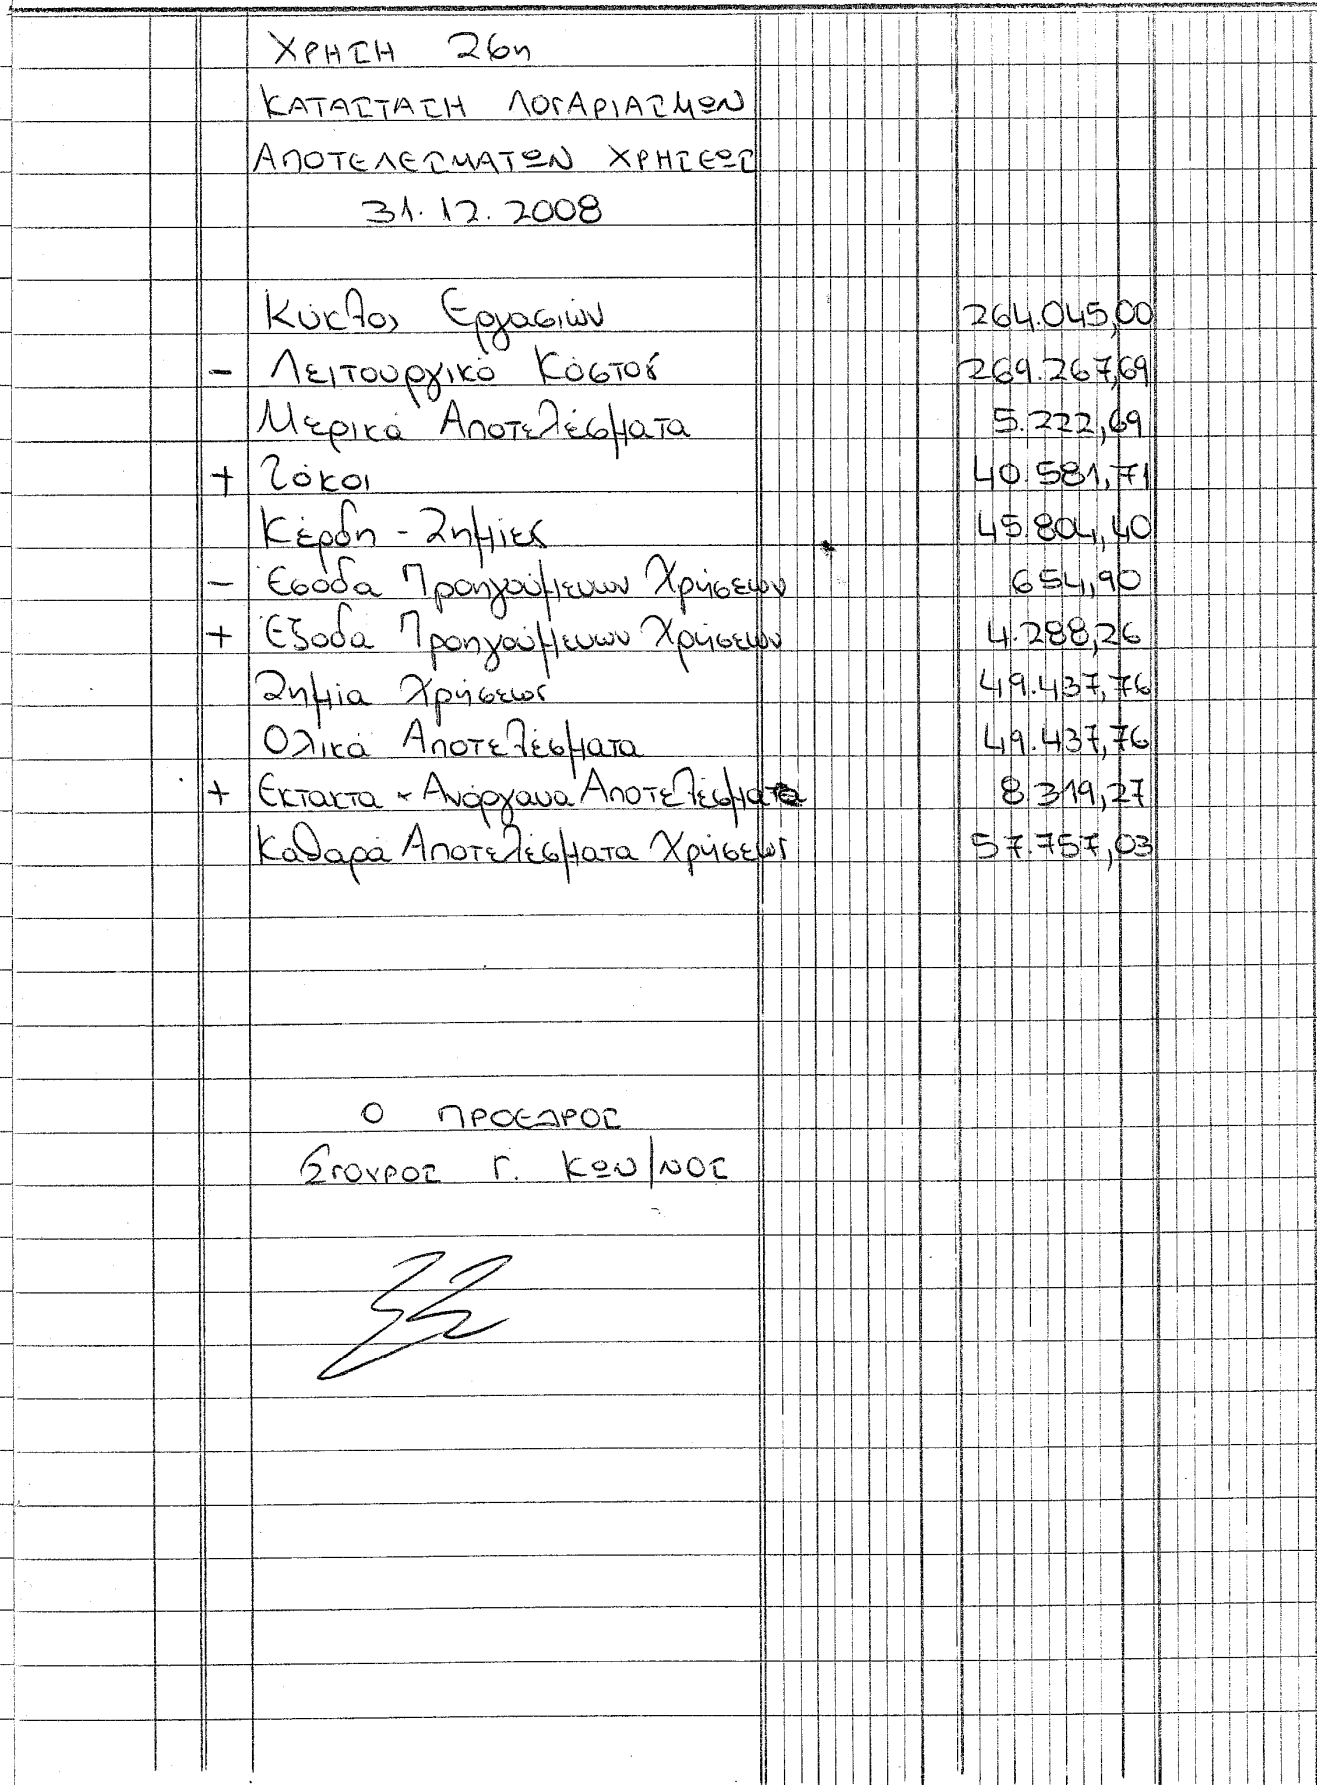 ΧΡΗΣΗ 26η
ΚΑΤΑΣΤΑΣΗ ΛΟΓΑΡΙΑΣΜΩΝ
ΑΠΟΤΕΛΕΣΜΑΤΩΝ ΧΡΗΣΕΩΣ
31.12.2008
Κύκλος Εργασιών 264.045,00
- Λειτουργικό Κόστος 269.267,69
Μερικά Αποτελέσματα 5.222,69
+ Τόκοι 40.581,71
Κέρδη - Ζημίες 45.804,40
- Εσοδα Προηγούμενων Χρήσεων 654,90
+ Έξοδα Προηγούμενων Χρήσεων 4.288,26
Ζημία Χρήσεως 49.437,76
Ολικά Αποτελέσματα 49.437,76
+ Εκτακτα + Ανόργανα Αποτελέσματα 8.319,27
Καθαρά Αποτελέσματα Χρήσεως 57.757,03
Ο ΠΡΟΕΔΡΟΣ
ΣΓΟΥΡΟΣ Γ. ΚΩΝ/ΝΟΣ